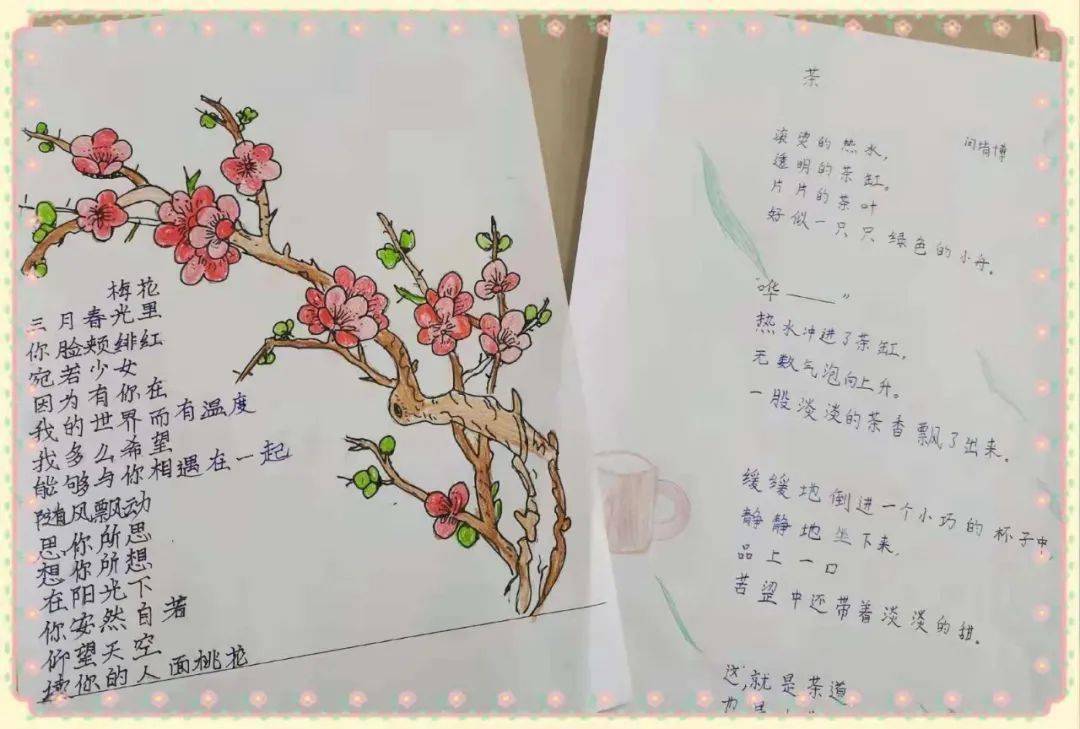 梅花
三月春光里
你脸颊绯红
宛若少女
因为有你在
我的世界而有温度
我多么希望
能够与你相遇在一起
随风飘动
思你所思
想你所想
在阳光下
你安然自若
仰望天空
你的人面桃花
茶
闫肯博
滚烫的热水,
透明的茶缸。
片片的茶叶
好似一只只绿色的小舟。
“哗——”
热水冲进了茶缸,
无数气泡向上升。
一股淡淡的茶香飘了出来。
缓缓地倒进一个小巧的杯子中,
静静地坐下来,
品上一口
苦涩中还带着淡淡的甜。
这,就是茶道